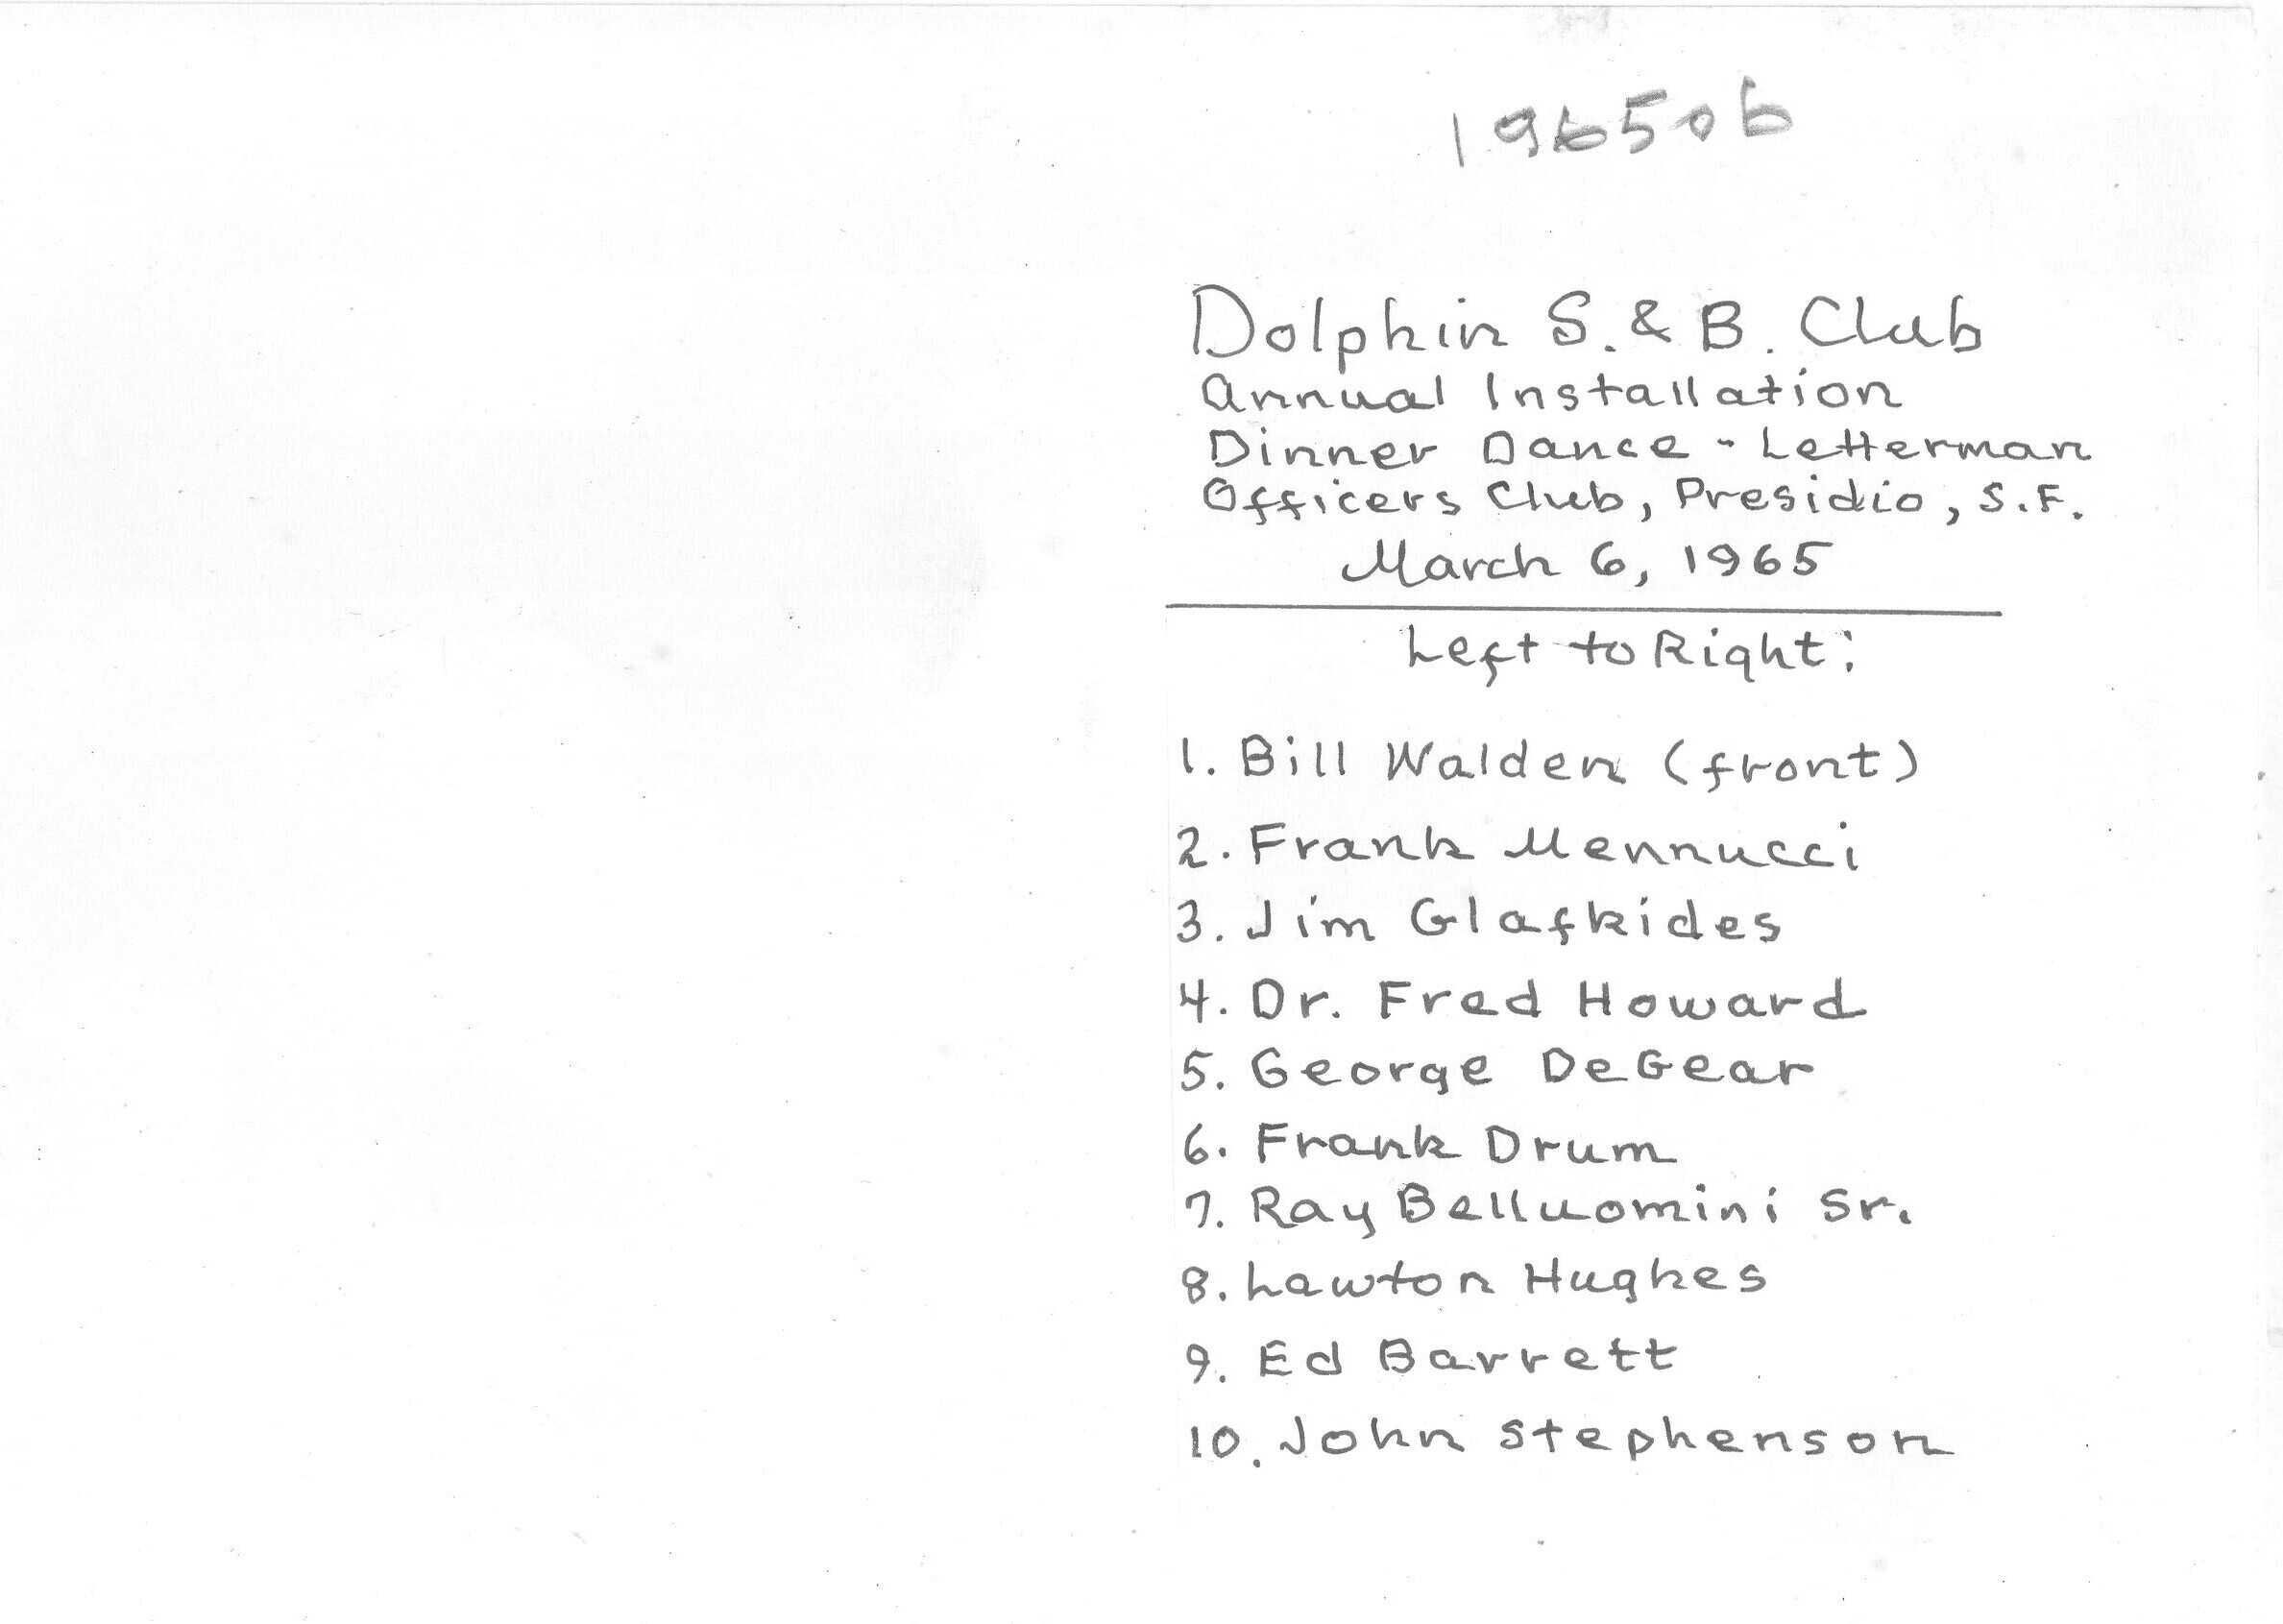 196506
Dolphin S. & B. Club
Annual Installation
Dinner Dance - Letterman
Officers Club, Presidio, S.F.
March 6, 1965
Left to Right:
1. Bill Walden (front)
2. Frank Mennucci
3. Jim Glafkides
4. Dr. Fred Howard
5. George DeGear
6. Frank Drum
7. Ray Belluomini Sr.
8. Lawton Hughes
9. Ed Barrett
10. John Stephenson